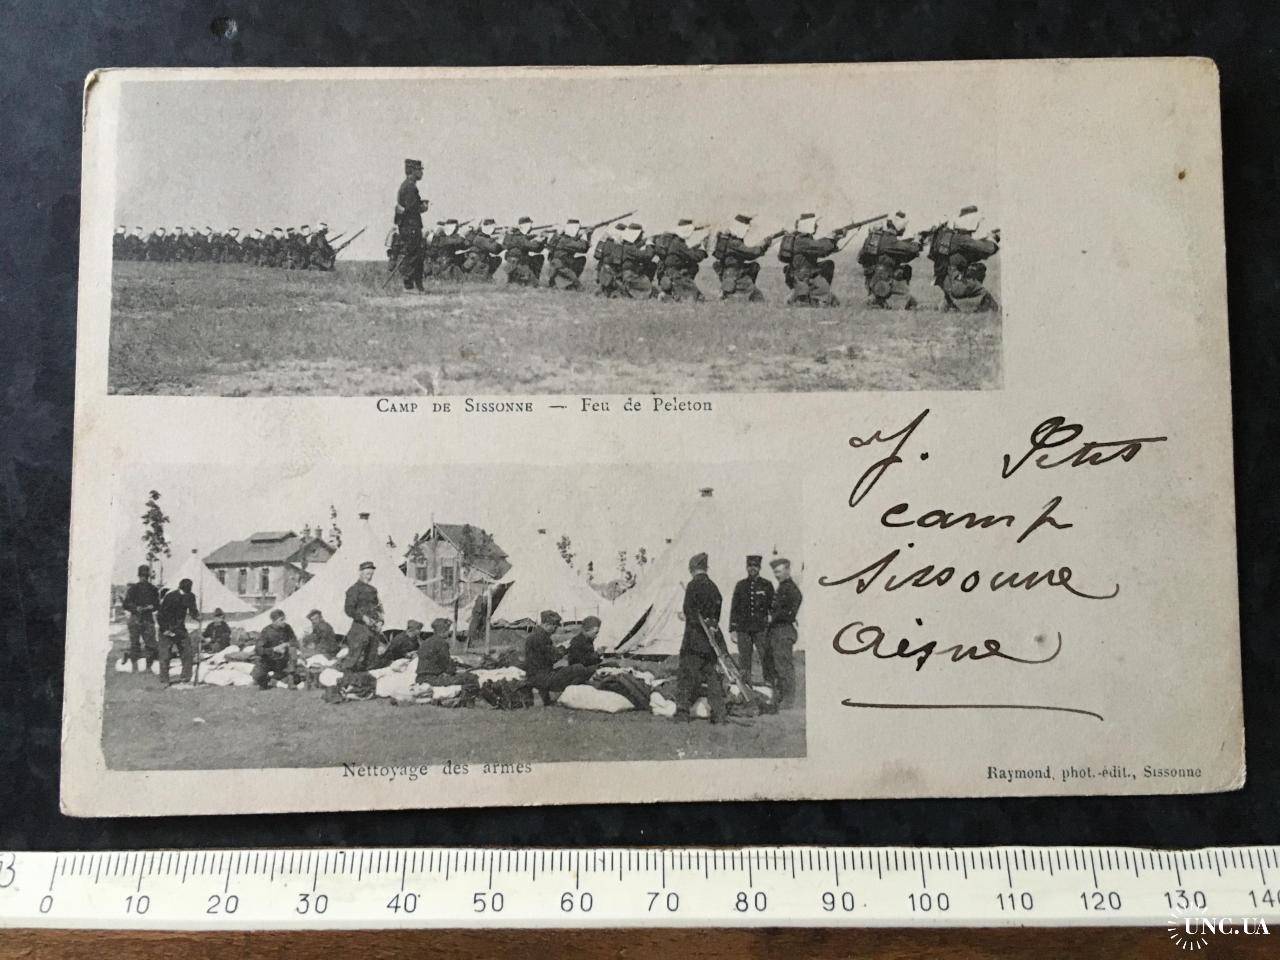 CAMP DE SISSONNE — Feu de Peleton
J. Petit
camp
Sissonne
Aisne
Nettoyage des armes
Raymond, phot.-édit., Sissonne
0 10 20 30 40 50 60 70 80 90 100 110 120 130 140
UNC.UA